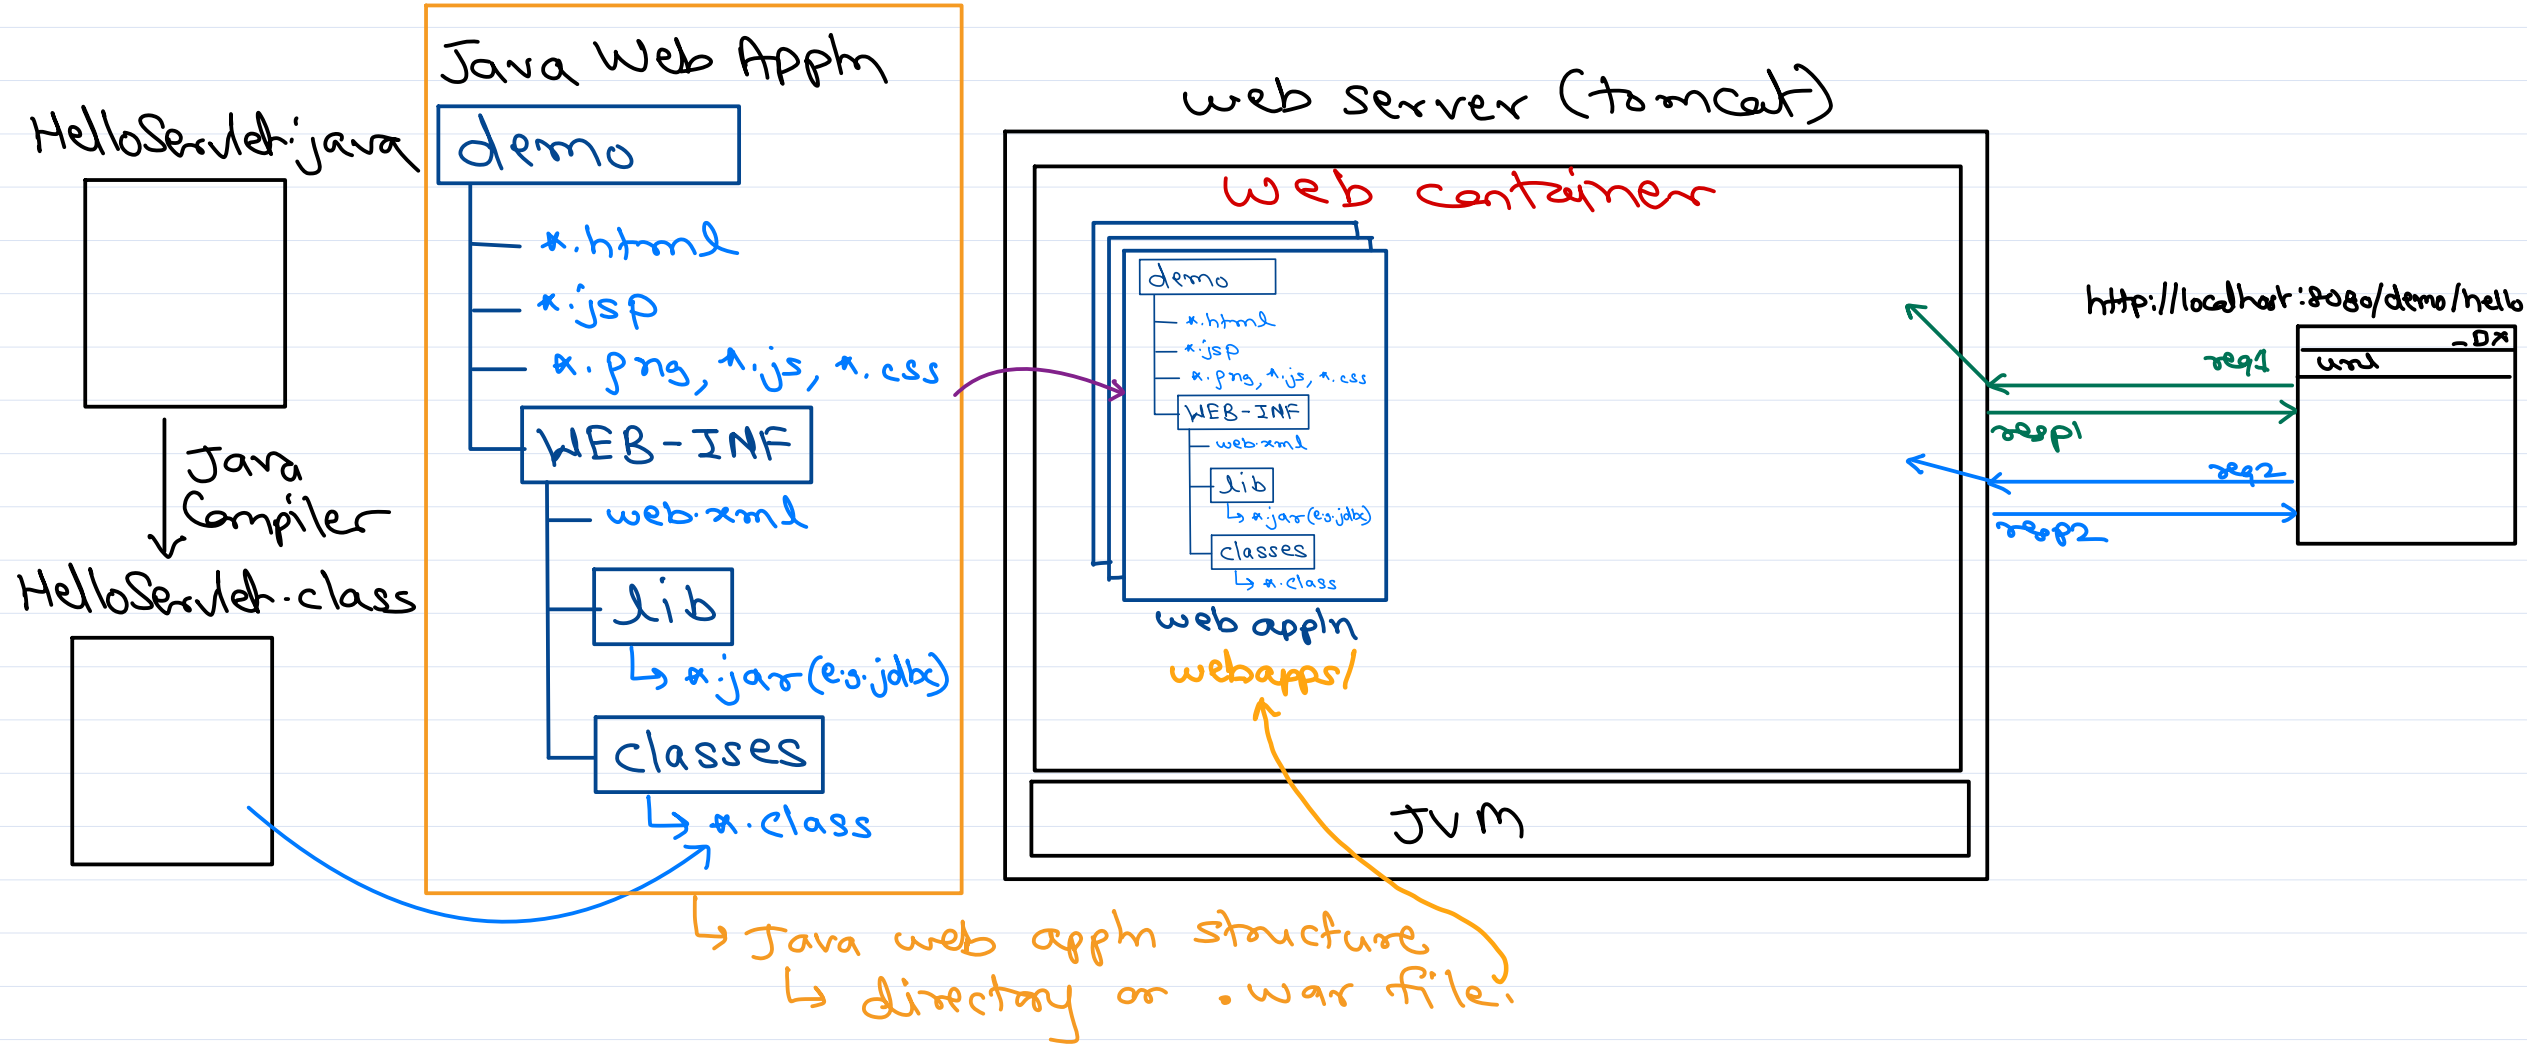 HelloServlet.java
Java
Compiler
HelloServlet.class
Java Web Appln
demo
*.html
*.jsp
*.png, *.js, *.css
WEB-INF
web.xml
lib
*.jar (e.g. jdbc)
classes
*.class
Java web appln structure
directory or .war file.
web server (tomcat)
web container
demo
*.html
*.jsp
*.png, *.js, *.css
WEB-INF
web.xml
lib
*.jar (e.g. jdbc)
classes
*.class
web appln
webapps/
JVM
http://localhost:8080/demo/hello
url
req1
resp1
req2
resp2